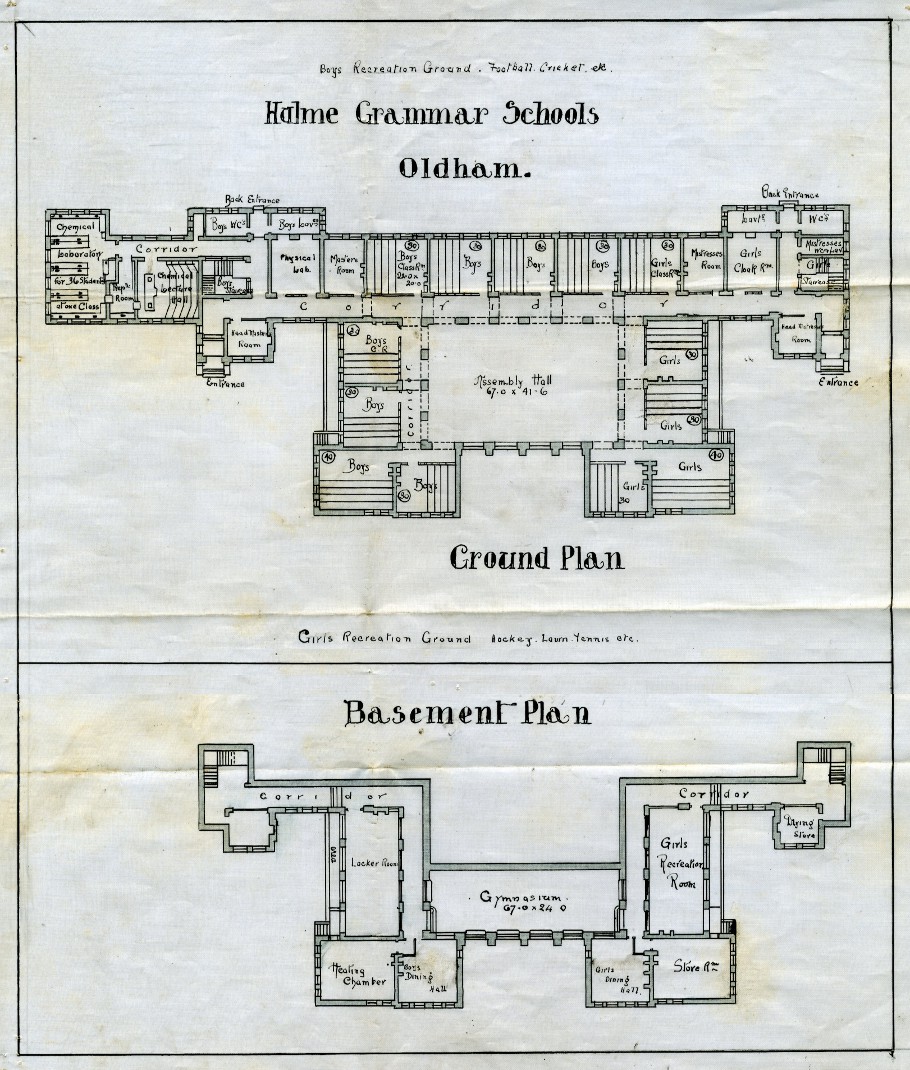 Boys Recreation Ground. Football. Cricket. etc.
Hulme Grammar Schools
Oldham.
Back Entrance
Back Entrance
Boys WCs
Boys Lavys
Lavys
WCs
Chemical
Laboratory
for 36 Students
at one Class
Corridor
Prepn
Room
Chemical
Lecture
Hall
Boys
Physical
Lab.
Masters
Room
30
Boys
Class Rm
24.0 x
20.0
30
Boys
30
Boys
30
Boys
30
Girls
Class Rm
Mistresses
Room
Girls
Cloak Rm
Mistresses
Girls
Corridor
Head Masters
Room
Head Mistress
Room
Entrance
Entrance
Boys
C.R
30
Boys
Corridor
Assembly Hall
67.0 x 41.6
Girls
30
Girls
30
40
Boys
30
Boys
Girls
30
Girls
40
Ground Plan
Girls Recreation Ground Hockey. Lawn Tennis etc.
Basement Plan
Corridor
Corridor
Locker Room
Girls
Recreation
Room
Dining
Store
Gymnasium.
67.0 x 24.0
Heating
Chamber
Boys
Dining
Hall
Girls
Dining
Hall.
Store Rm